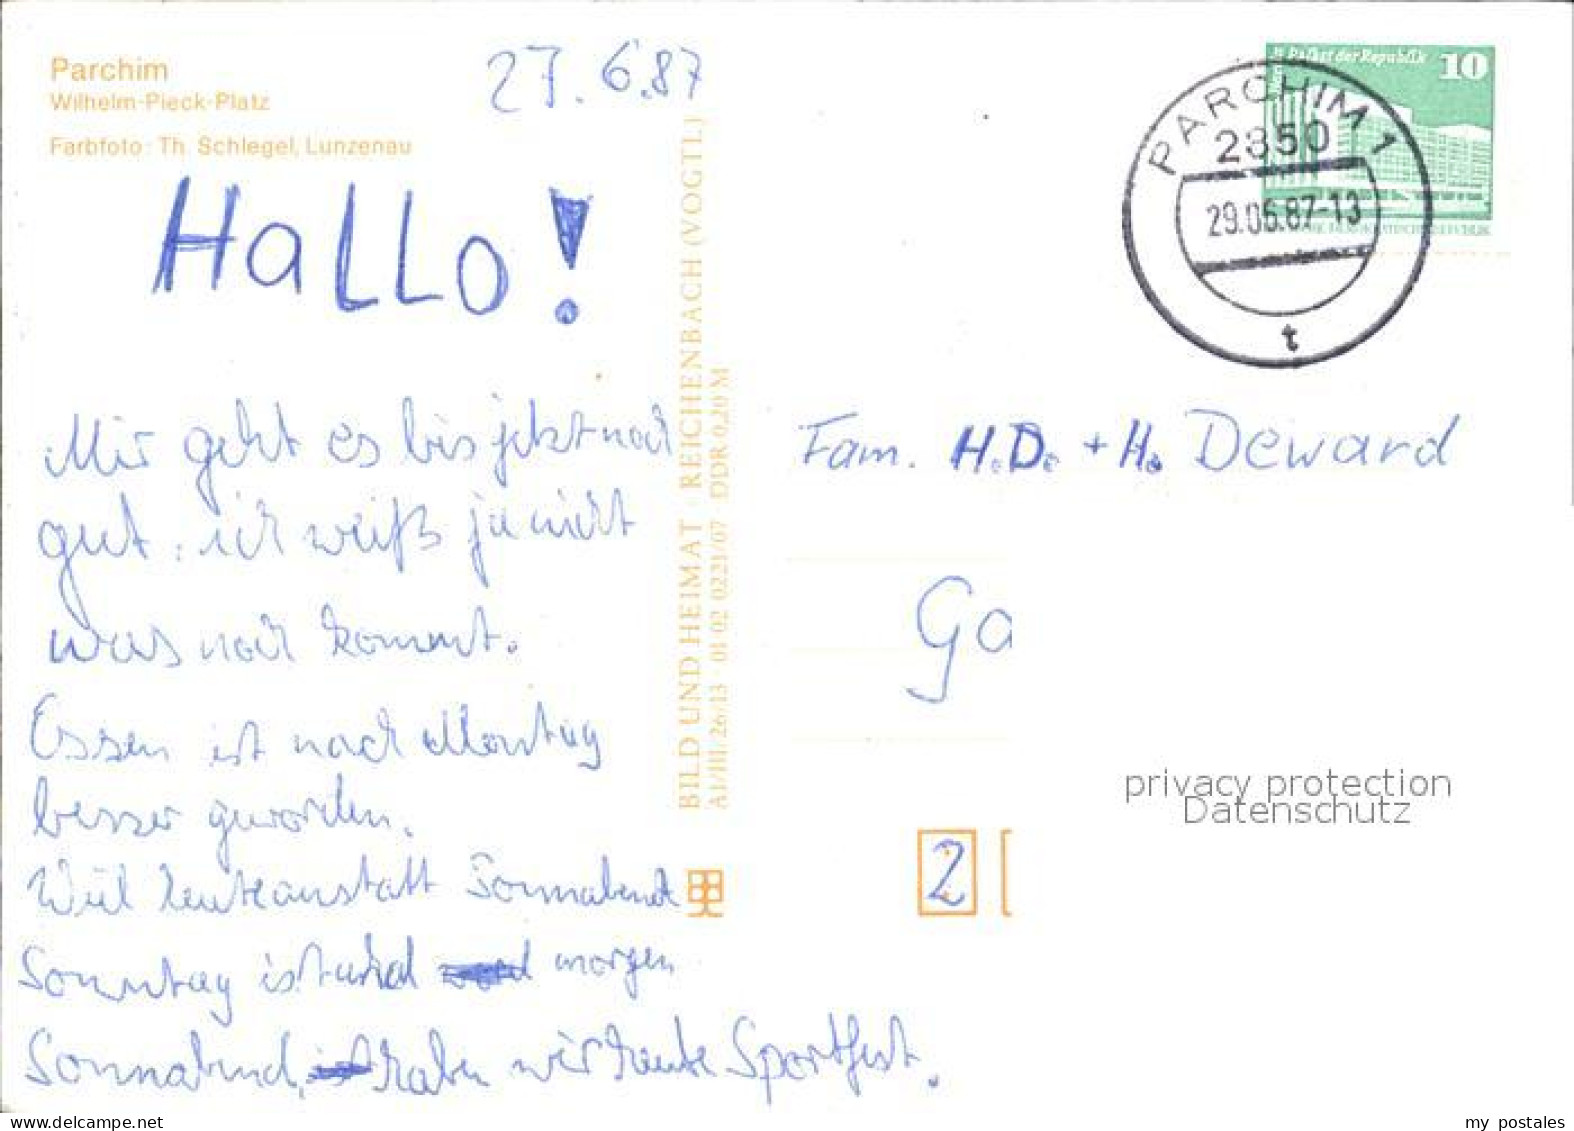 Parchim
Wilhelm-Pieck-Platz
Farbfoto: Th. Schlegel, Lunzenau
27.6.87
Hallo!
Mir geht es bis jetzt noch
gut, ich weiß ja nicht
was noch kommt.
Essen ist nach Montag
besser geworden.
Weil heute anstatt Sonnabend
Sonntag ist und morgen
Sonnabend, haben wir heute Sportfest.
BILD UND HEIMAT REICHENBACH (VOGTL)
A1/III/26/13 · 01 02 0221/07 DDR 0,20 M
Palast der Republik 10
PARCHIM 1
2850
29.06.87-13
t
Fam. H.D. + H. Deward
Ga
privacy protection
Datenschutz
2
www.delcampe.net
my postales